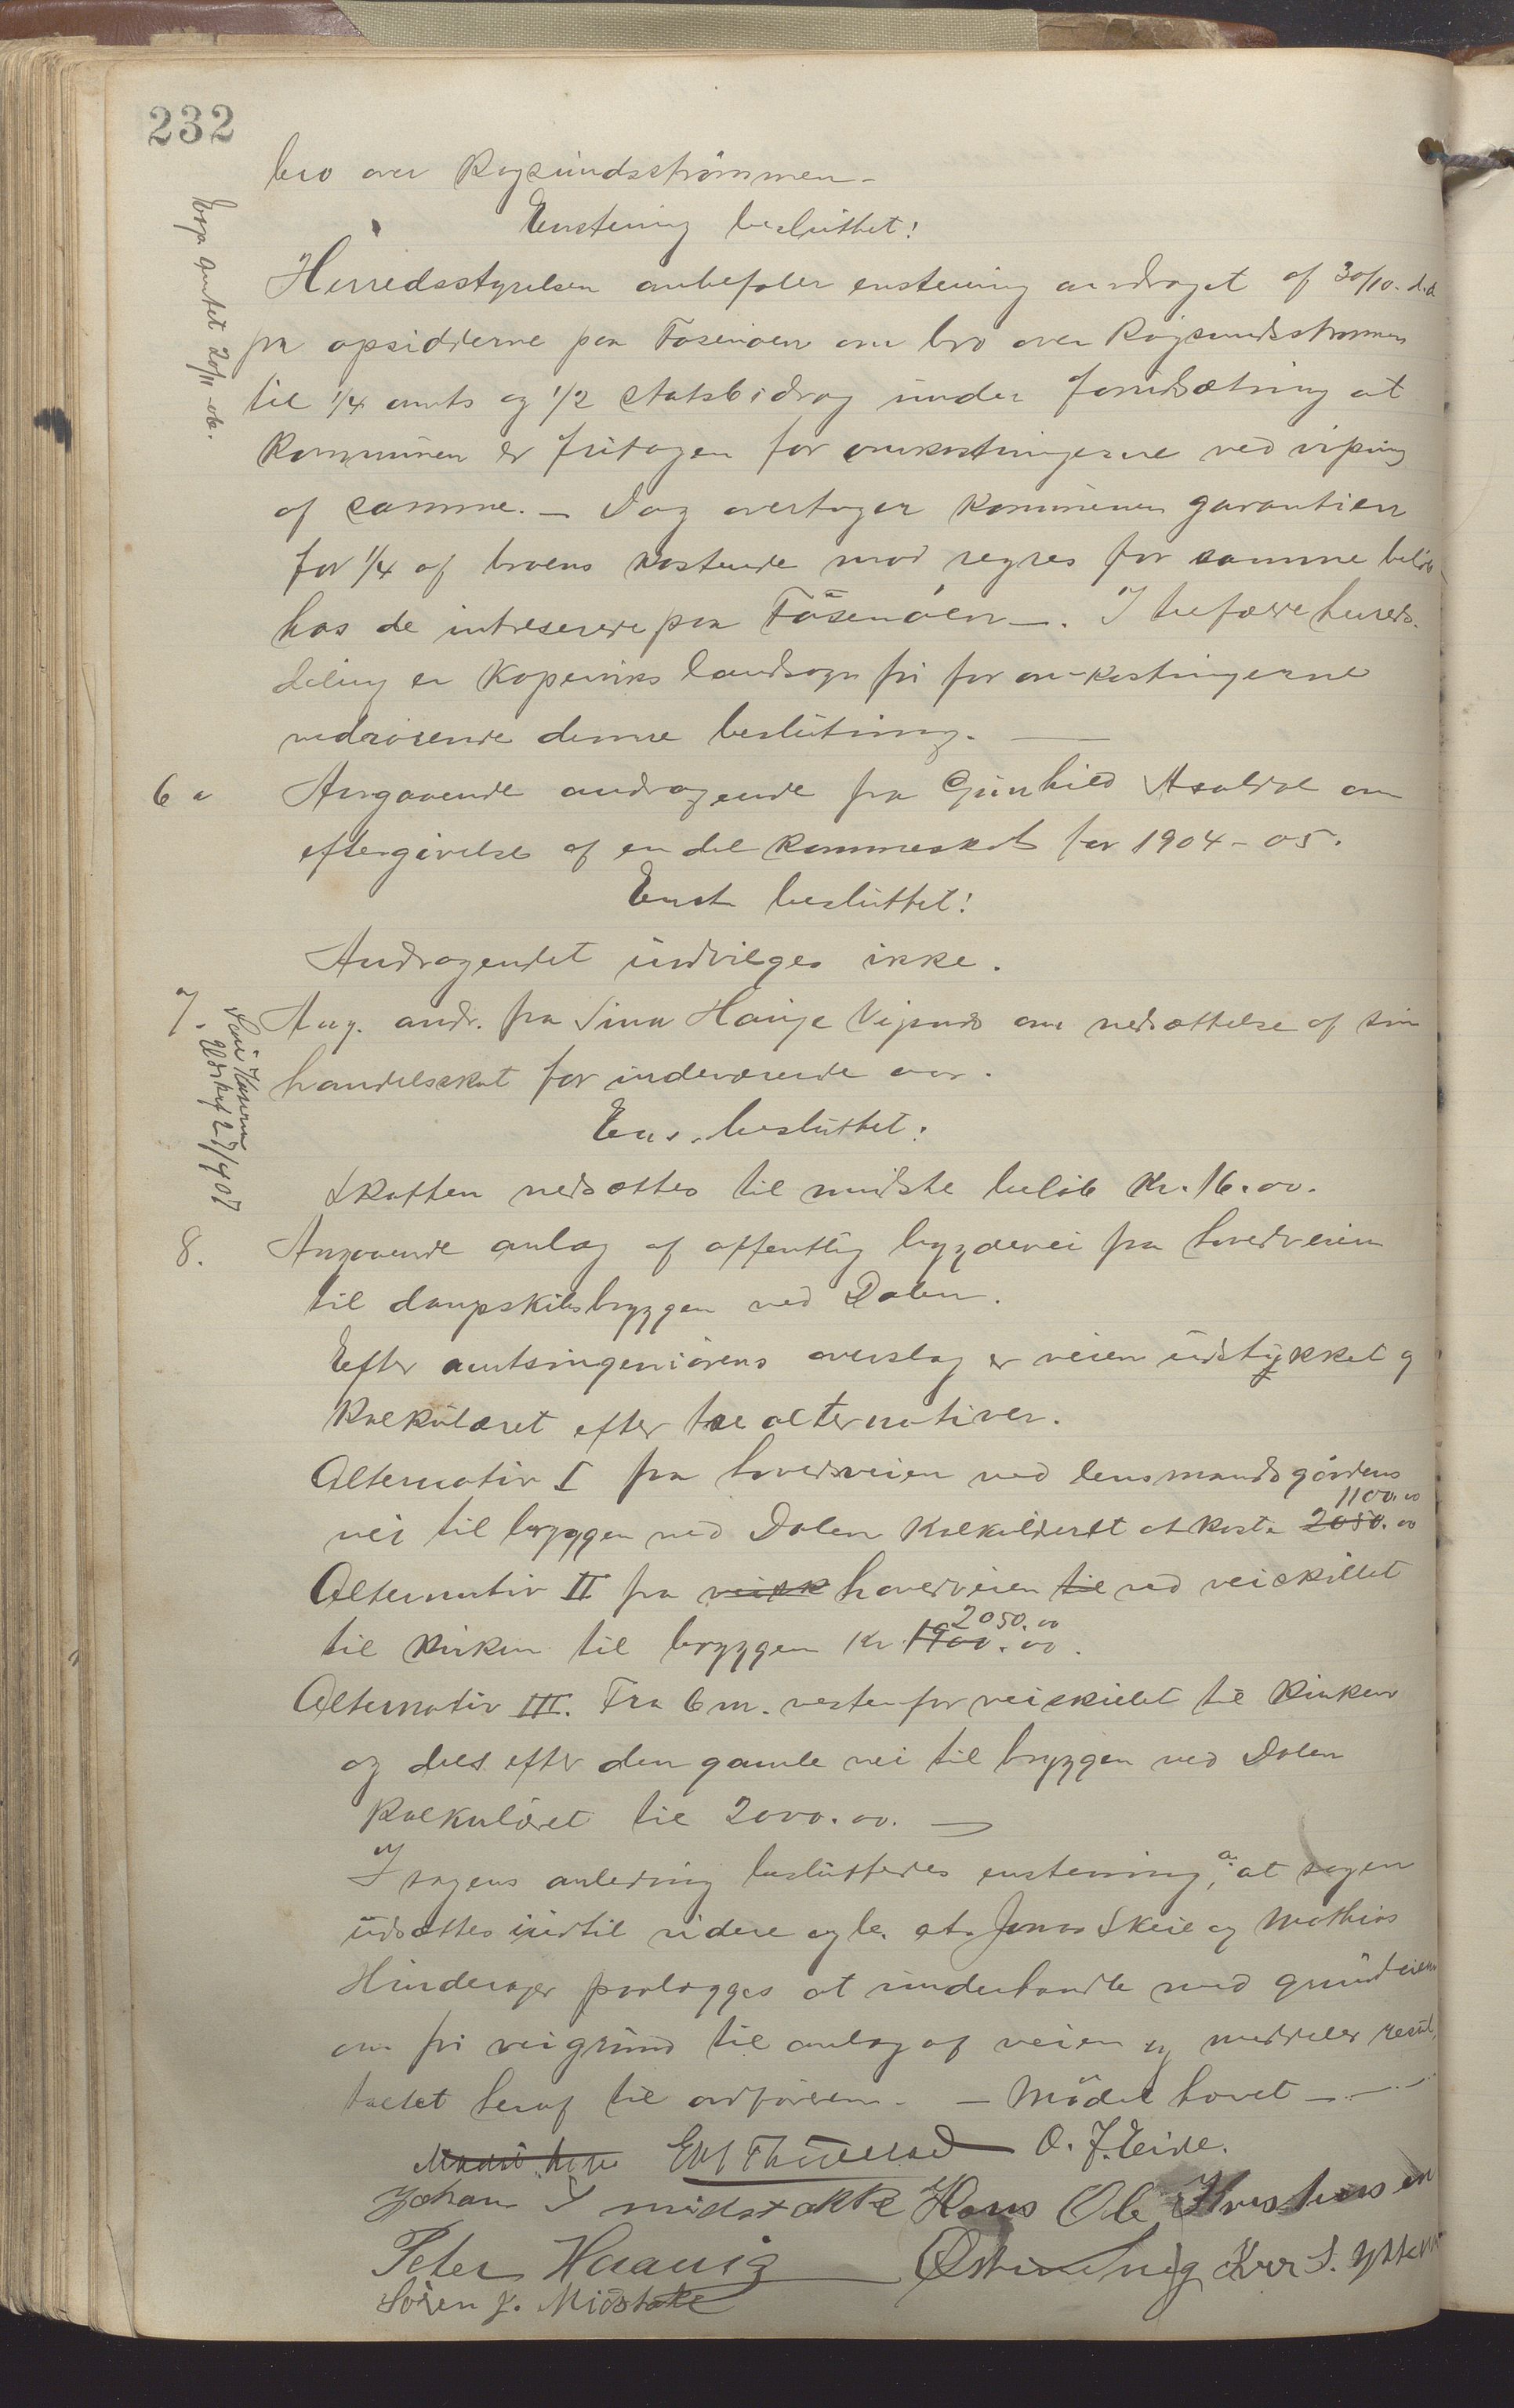 232
bro over Røgsundsstrømmen -
Enstemig besluttet!
Exp. Amtet 20/11 -06.
Herredsstyrelsen anbefaler enstemig andraget af 30/10. d.a
fra opsidderne paa Fosenøen om bro over Røgsundsstrømmen
til 1/4 amts og 1/2 statsbidrag under forudsætning at
kommunen er fritagen for omkostningerne ved
af samme. - Dog overtager kommunen garantien
for 1/4 af broens kostende mod regres for samme beløb
hos de intreserede paa Fosenøen -. I tilfælde herreds-
deling er Koperviks landsogn fri for omkostningerne
vedrørende denne beslutning. -
6 a Angaaende andragende fra Gunhild Asaldal om
eftergivelse af en del kommeskat for 1904 - 05.
Enst besluttet!
Andragendet indvilges ikke.
7. Ang. andr. fra Sina Hauge Vigsnes om nedsættelse af sin
handelsskat for indeværende aar.
Ens. besluttet:
Skatten nedsættes til mindste beløb Kr. 16.00.
8. Angaaende anlæg af offentlig bygdevei fra hovedveien
til dampskibsbryggen ved Dalen.
Efter amtsingeniørens overslag er veien udstykket og
kalkuleret efter tre alternativer.
Alternativ I fra hovedveien ved lensmandsgårdens
1100.00
vei til bryggen ved Dalen kalkuleret at koste 2050.00
Alternativ II fra veisk hovedveien til ved veiskillet
2050.00
til kirken til bryggen Kr. 1900.00.
Alternativ III. Fra 6 m. vestenfor veiskillet til kirken
og dels efter den gamle vei til bryggen ved Dalen
kalkuleret til 2000.00. -
I sagens anledning besluttedes enstemig, a: at sagen
udsættes indtil videre og b. at Jonas Skeie og Mathias
Hinderager paalægges at underhandle med grundeierne
om fri veigrund til anlæg af veien og meddeler resul-
tatet heraf til ordføreren. - Mødet hævet -
O. J. Eide.
Johan S midstokke Hans Ole Kristensen
Peter Haavig
Sören J. Midstokke